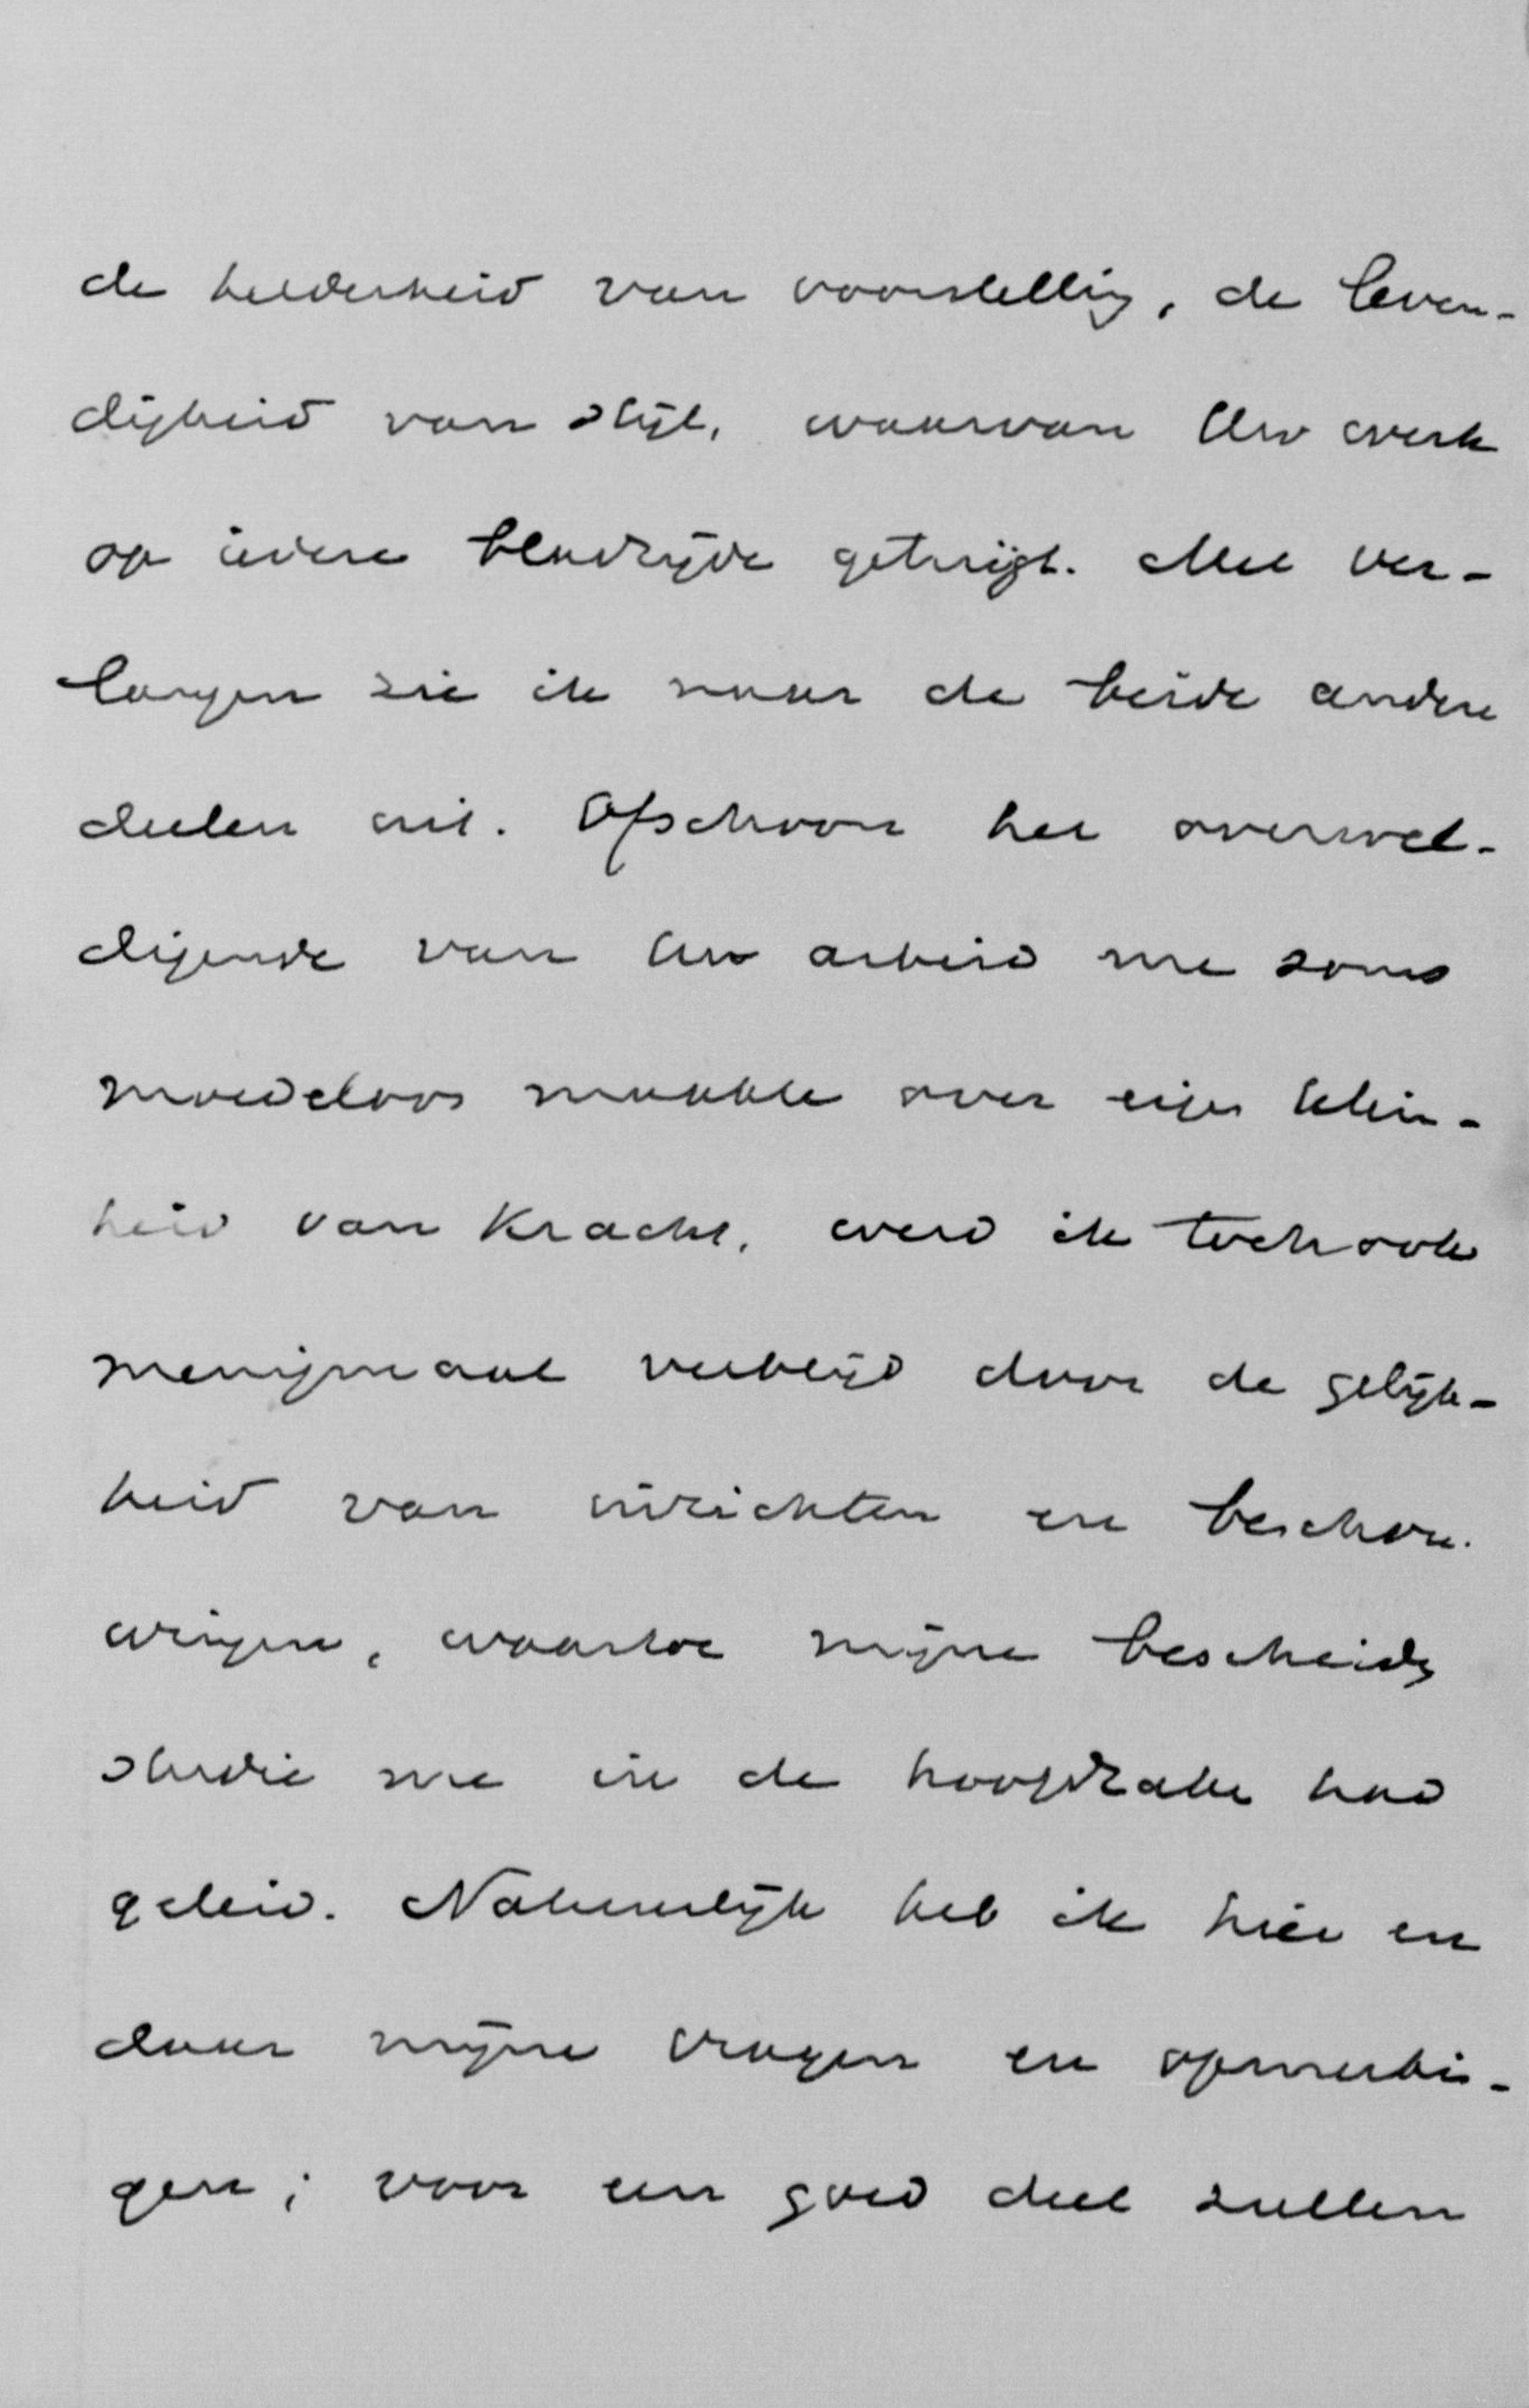 de helderheid van voorstelling, de leven-
digheid van stijl, waarvan Uw werk
op iedere bladzijde getuigt. Met ver-
langen zie ik naar de beide andere
deelen uit. Ofschoon het overwel-
digende van Uw arbeid me soms
moedeloos maakte over eigen klein-
heid van Kracht, werd ik toch ook
menigmaal verblijd door de gelijk-
heid van inzichten en beschou-
wingen, waartoe mijne bescheiden
studie me in de hoofdzaken had
geleid. Natuurlijk heb ik hier en
daar mijne vragen en opmerkin-
gen; voor een goed deel zullen